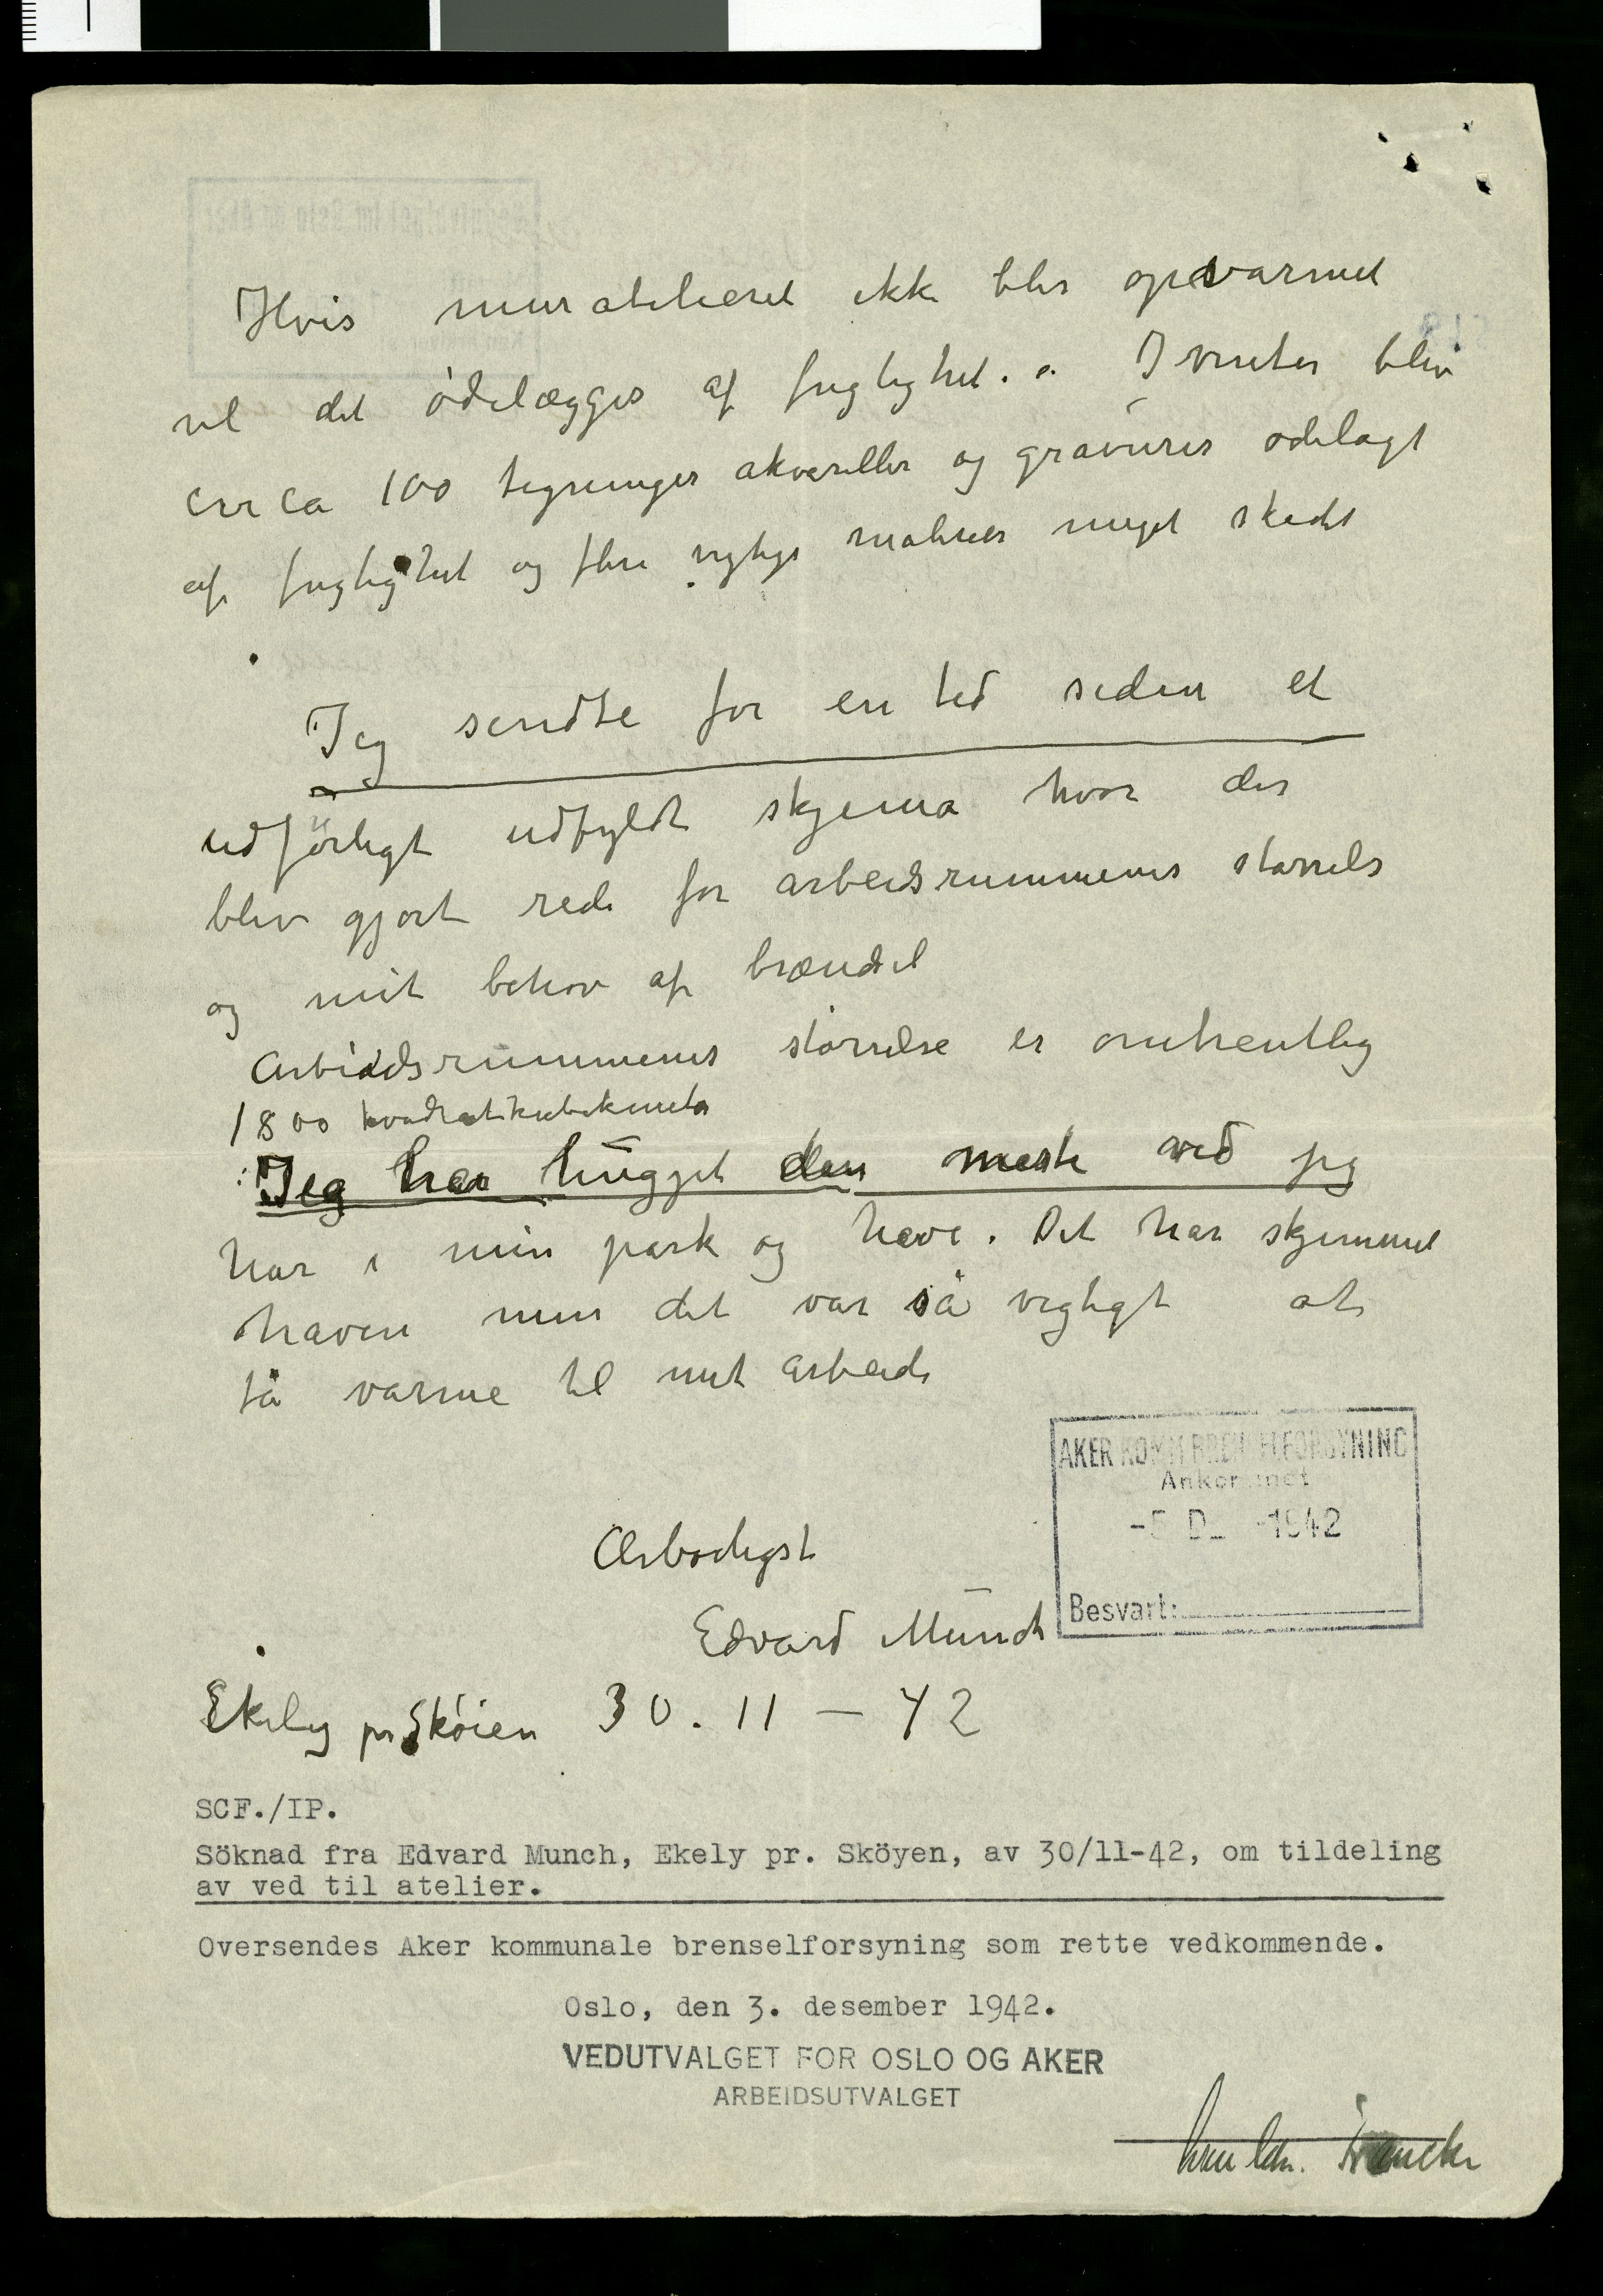 Hvis muratelieret ikke blir opvarmet
vil det ödelægges af fugtighet. I vinter blev
circa 100 tegninger akvareller og gravürer ödelagt
af fugtighet og flere vigtige malerier meget skadet
Jeg sendte for en tid siden et
udförligt udfyldt skjema hvor der
blev gjort rede for arbeidsrummenes størrelse
og mit behov af brændsel
Arbeidsrummenes størrelse er omtrentlig
1800 kvadratkubikmeter
Jeg har hugget den meste ved jeg
har i min park og have. Det har skjemmet
haven men det var så vigtigt at
få varme til mit arbeide
AKER KOMM BRENSELFORSYNING
Ankommet
-5 DES 1942
Besvart:
Ærbødigst
Edvard Münch
Ekely pr Sköien 30. 11 – 42
SCF./IP.
Söknad fra Edvard Munch, Ekely pr. Sköyen, av 30/11-42, om tildeling
av ved til atelier.
Oversendes Aker kommunale brenselforsyning som rette vedkommende.
Oslo, den 3. desember 1942.
VEDUTVALGET FOR OSLO OG AKER
ARBEIDSUTVALGET